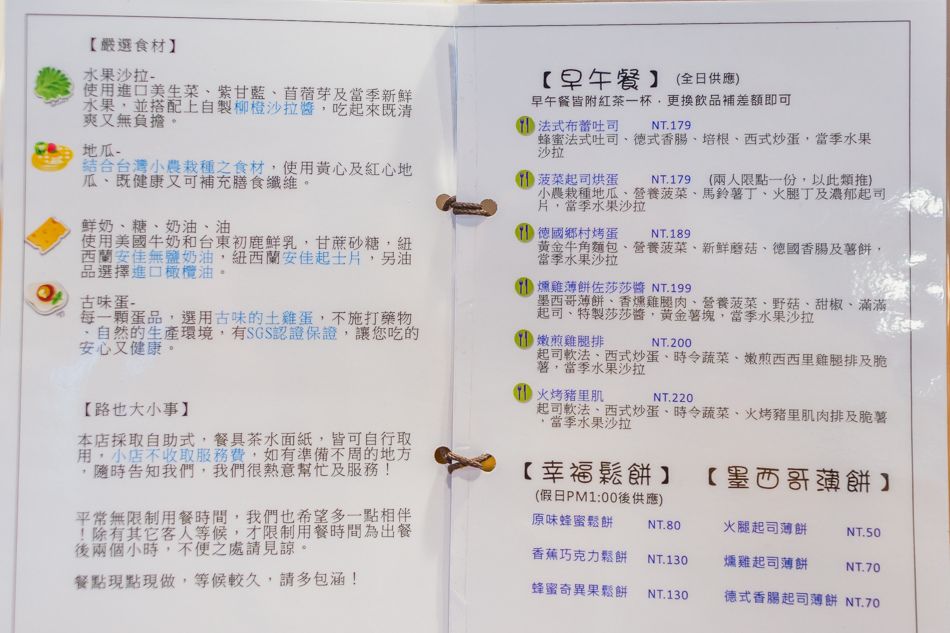 【嚴選食材】
水果沙拉-
使用進口美生菜、紫甘藍、苜蓿芽及當季新鮮
水果，並搭配上自製柳橙沙拉醬，吃起來既清
爽又無負擔。
地瓜-
結合台灣小農栽種之食材，使用黃心及紅心地
瓜、既健康又可補充膳食纖維。
鮮奶、糖、奶油、油
使用美國牛奶和台東初鹿鮮乳，甘蔗砂糖，紐
西蘭安佳無鹽奶油，紐西蘭安佳起士片，另油
品選擇進口橄欖油。
古味蛋-
每一顆蛋品，選用古味的土雞蛋，不施打藥物
、自然的生產環境，有SGS認證保證，讓您吃的
安心又健康。
【路也大小事】
本店採取自助式，餐具茶水面紙，皆可自行取
用，小店不收取服務費，如有準備不周的地方
，隨時告知我們，我們很熱意幫忙及服務！
平常無限制用餐時間，我們也希望多一點相伴
！除有其它客人等候，才限制用餐時間為出餐
後兩個小時，不便之處請見諒。
餐點現點現做，等候較久，請多包涵！
【早午餐】(全日供應)
早午餐皆附紅茶一杯．更換飲品補差額即可
法式布蕾吐司 NT.179
蜂蜜法式吐司、德式香腸、培根、西式炒蛋，當季水果
沙拉
菠菜起司烘蛋 NT.179 (兩人限點一份，以此類推)
小農栽種地瓜、營養菠菜、馬鈴薯丁、火腿丁及濃郁起司
片，當季水果沙拉
德國鄉村烤蛋 NT.189
黃金牛角麵包、營養菠菜、新鮮蘑菇、德國香腸及薯餅，
當季水果沙拉
燻雞薄餅佐莎莎醬 NT.199
墨西哥薄餅、香燻雞腿肉、營養菠菜、野菇、甜椒、滿滿
起司、特製莎莎醬，黃金薯塊，當季水果沙拉
嫩煎雞腿排 NT.200
起司軟法、西式炒蛋、時令蔬菜、嫩煎西西里雞腿排及脆
薯，當季水果沙拉
火烤豬里肌 NT.220
起司軟法、西式炒蛋、時令蔬菜、火烤豬里肌肉排及脆薯
，當季水果沙拉
【幸福鬆餅】
(假日PM1:00後供應)
原味蜂蜜鬆餅 NT.80
香蕉巧克力鬆餅 NT.130
蜂蜜奇異果鬆餅 NT.130
【墨西哥薄餅】
火腿起司薄餅 NT.50
燻雞起司薄餅 NT.70
德式香腸起司薄餅 NT.70